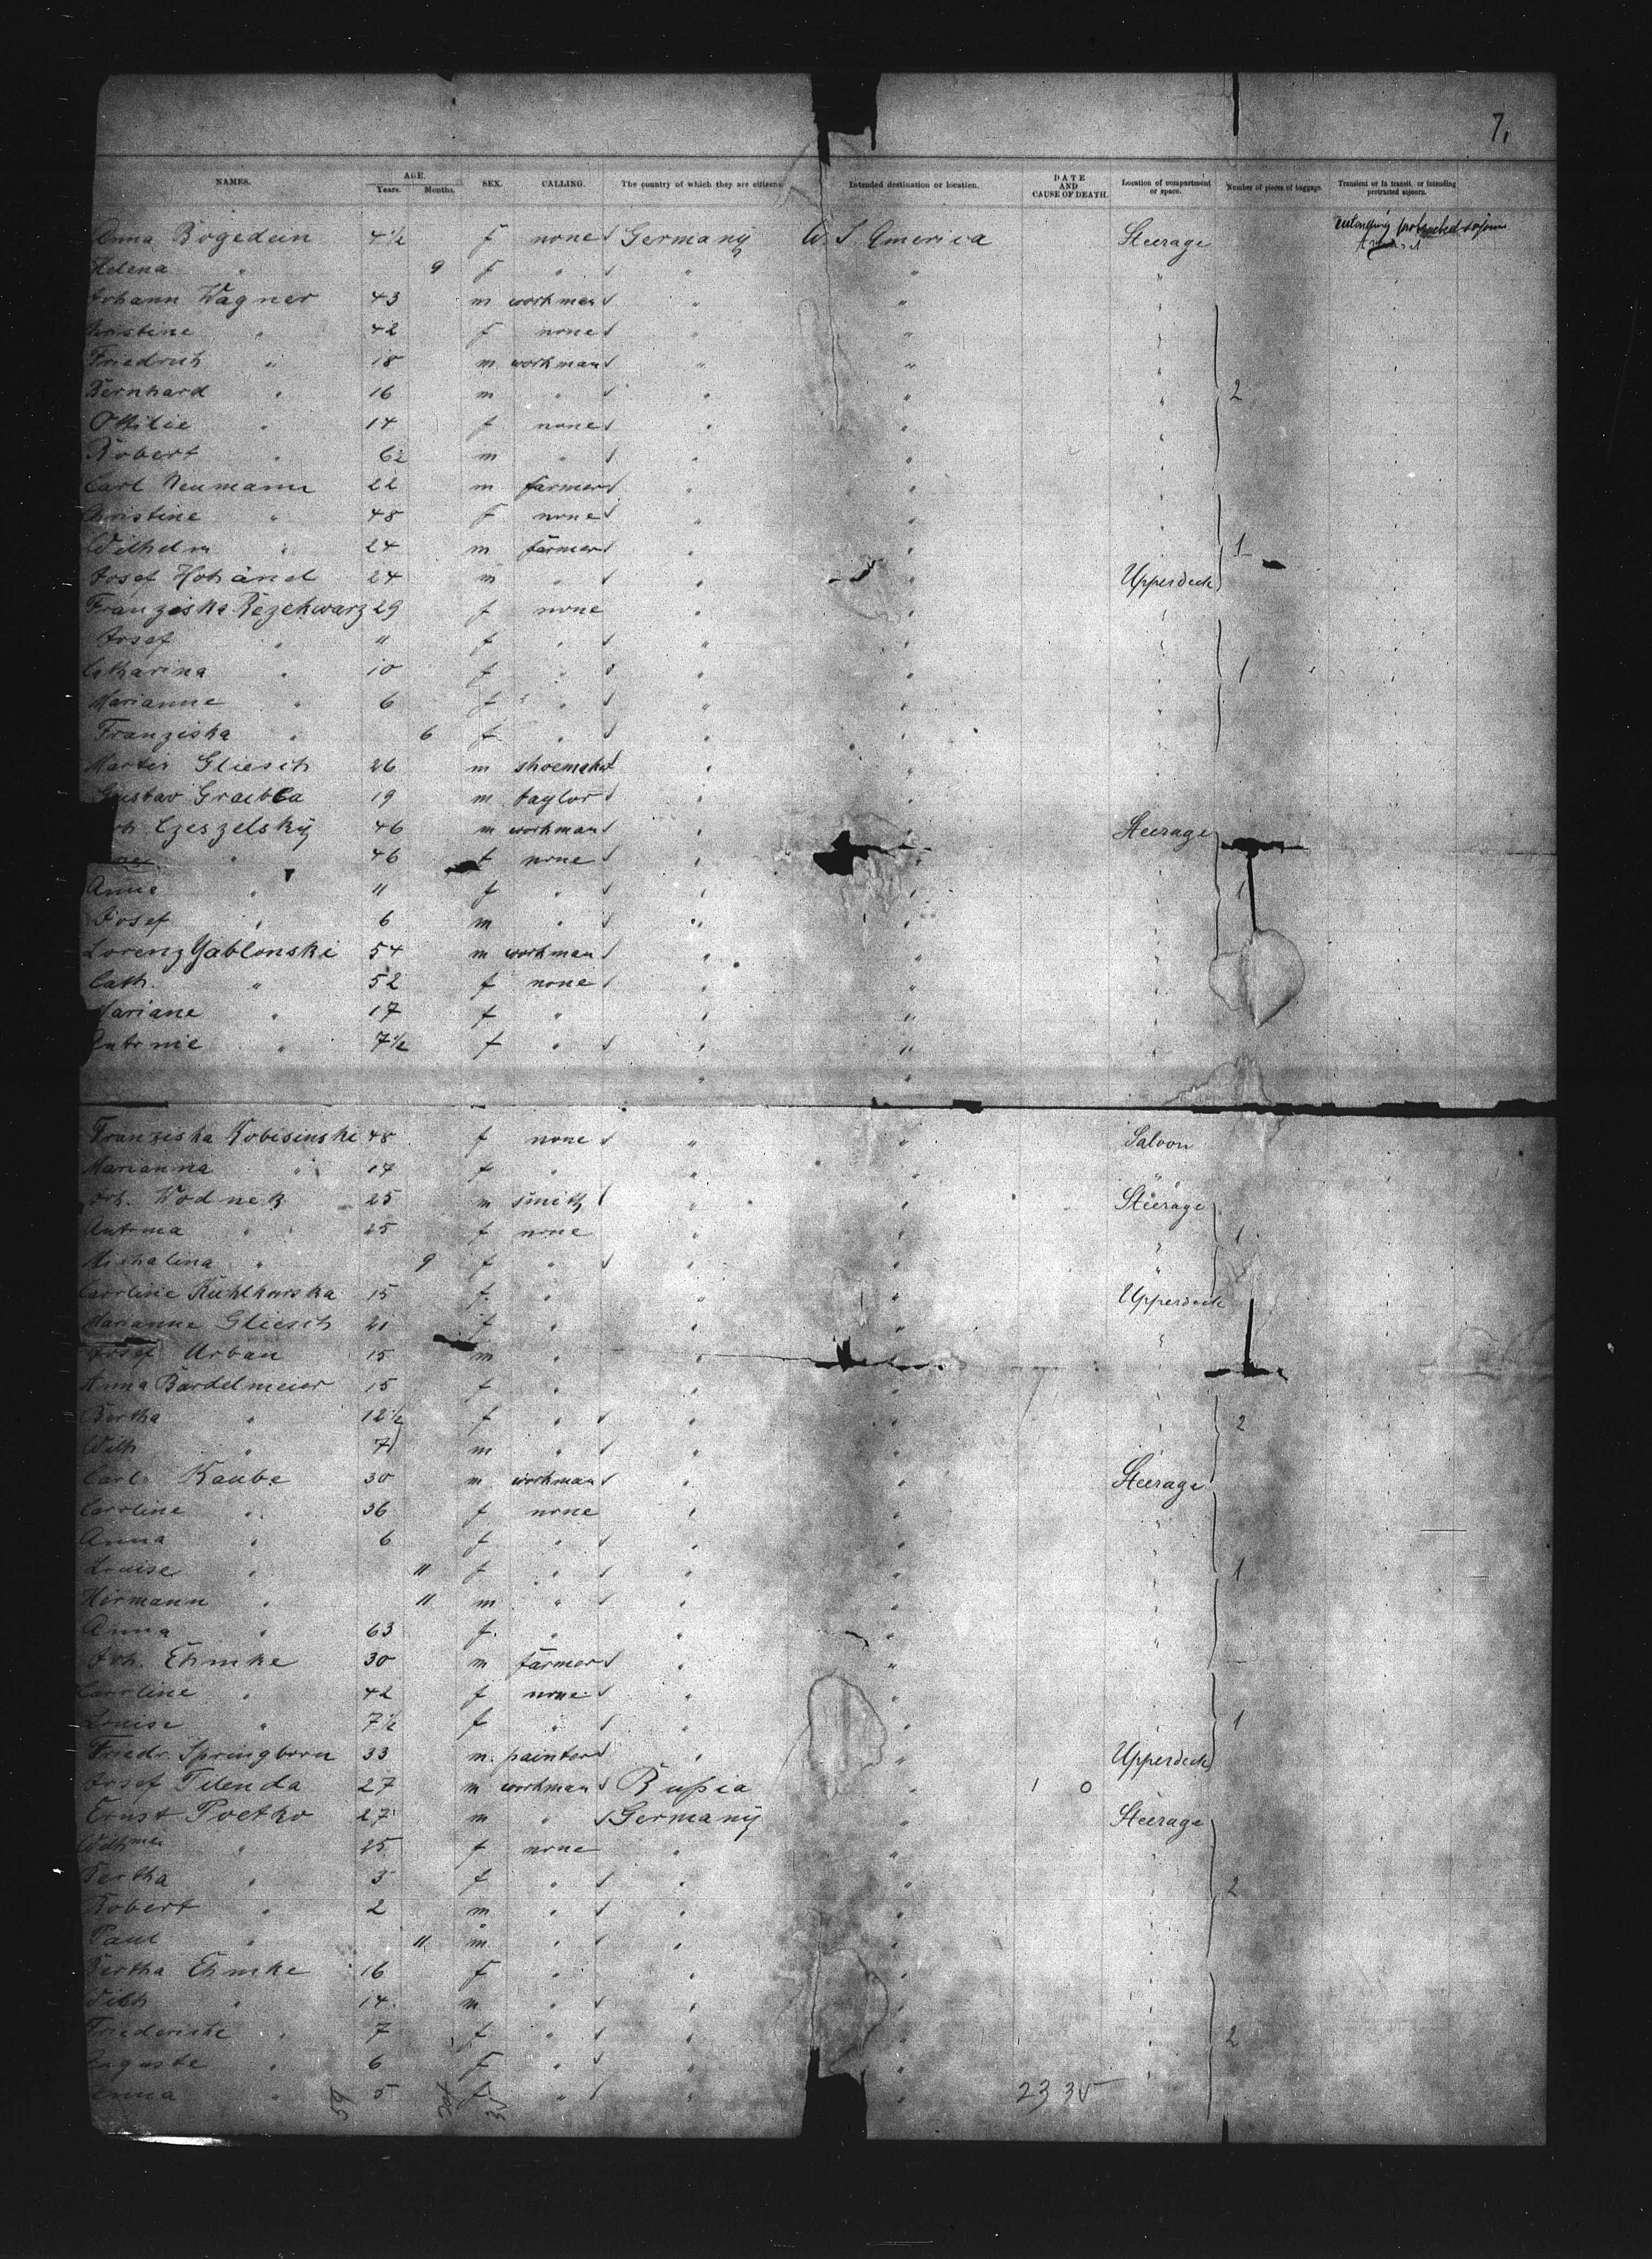 7.
NAMES. AGE. Years. Months. SEX. CALLING. The country of which they are citizens. Intended destination or location. DATE AND CAUSE OF DEATH. Location of compartment or space. Number of pieces of baggage. Transient or in transit, or intending protracted sojourn.
Anna Bogedein 4 1/2 f none Germany U. S. America Steerage intending protracted sojourn
Helena " 9 f " " "
Johann Wagner 43 m workman " " "
Christine " 42 f none " " "
Friedrich " 18 m workman " " "
Bernhard " 16 m " " " " 2
Ottilie " 14 f none " " "
Robert " 6 1/2 m " " " "
Carl Neumann 22 m farmer " " "
Christine " 48 f none " " "
Wilhelm " 24 m farmer " " " 1
Josef Hohänel 24 m " " " Upperdeck
Franziska Rezehwarz 29 f none " "
Josef " 11 f " " " "
Catharina " 10 f " " " " 1
Marianne " 6 f " " " "
Franziska " 6 f " " " "
Martin Gliesch 26 m shoemaker " " "
Gustav Graibla 19 m taylor " "
Joh. Czeszelsky 46 m workman " Steerage
" 46 f none "
Anna " 11 f " " " " 1
Josef " 6 m " " " "
Lorenz Jablonski 54 m workman " " "
Cath. " 52 f none " " "
Mariane " 17 f " " " "
Antonie " 7 1/2 f " " " "
" "
Franziska Kobisinski 48 f none " " Saloon
Marianna " 17 f " " " "
Joh. Wodneck 25 m smith " " Steerage
Antonia " 25 f none " " " 1
Michalina " 9 f " " " "
Caroline Kuhlkowska 15 f " " " Upperdeck
Marianne Gliesch 21 f " " " "
Josef Urban 15 m " "
Anna Bardelmeier 15 f " " " "
Bertha " 12 1/2 f " " " " 2
Wilh " 7 m " " " "
Carl Kaube 30 m workman " " Steerage
Caroline " 36 f none " " "
Anna " 6 f " " " "
Louise " 11 f " " " " 1
Hermann " 11 m " " " "
Anna " 63 f " " " "
Joh. Ehmke 30 m farmer " " "
Caroline " 42 f none " " "
Louise " 7 1/2 f " " " " 1
Friedr. Springborn 33 m painter " " Upperdeck
Josef Tilenda 27 m workman Russia " 1 0
Ernst Poetko 27 m " Germany " Steerage
Wilhmne " 25 f none " " "
Bertha " 3 f " " " " 2
Robert " 2 m " " " "
Paul " 11 m " " "
Bertha Ehmke 16 f " " " "
Wilh " 14 m " " " "
Friederike " 7 f " " " " 2
Auguste " 6 f " " " "
Anna " 5 f " " "
59 35 23 35